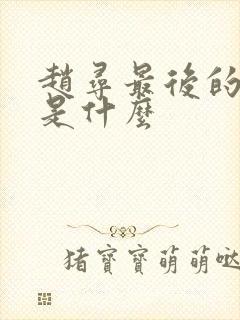 趙尋最後的
是什麼
猪寶寶萌萌噠